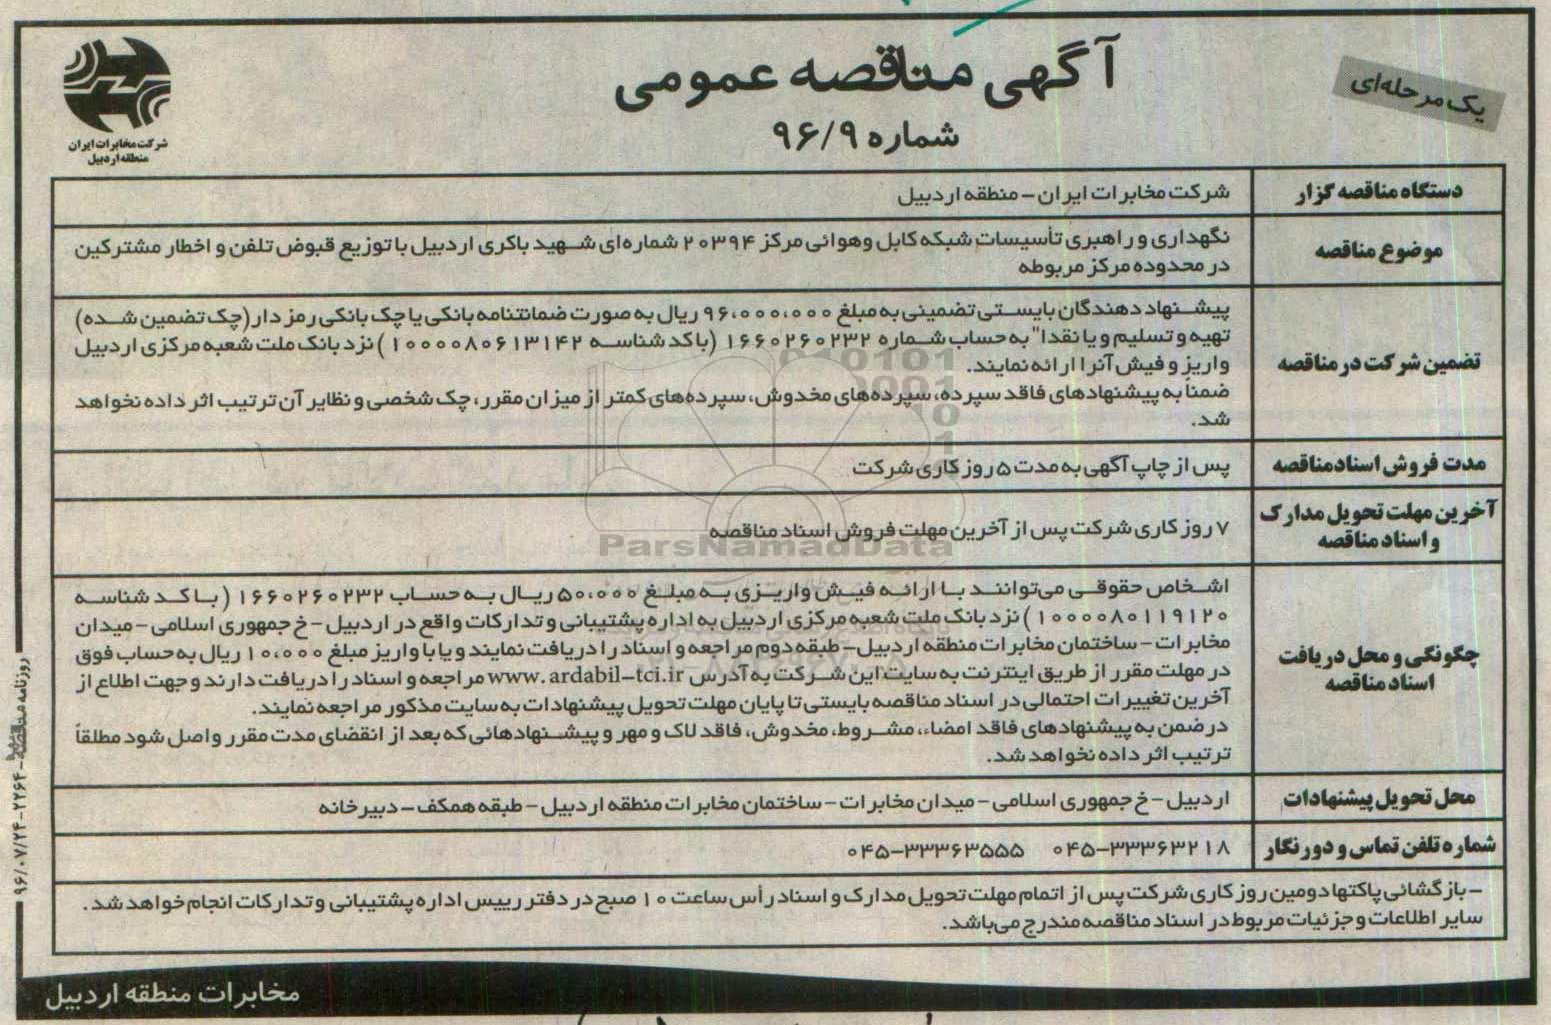 یک مرحله‌ای
آگهی مناقصه عمومی
شماره ۹۶/۹
شرکت مخابرات ایران
منطقه اردبیل
دستگاه مناقصه گزار
شرکت مخابرات ایران - منطقه اردبیل
موضوع مناقصه
نگهداری و راهبری تأسیسات شبکه کابل وهوائی مرکز ۲۰۳۹۴ شماره‌ای شهید باکری اردبیل با توزیع قبوض تلفن و اخطار مشترکین
در محدوده مرکز مربوطه
تضمین شرکت در مناقصه
پیشنهاد دهندگان بایستی تضمینی به مبلغ ۹۶،۰۰۰،۰۰۰ ریال به صورت ضمانتنامه بانکی یا چک بانکی رمز دار (چک تضمین شده)
تهیه و تسلیم و یا نقدا" به حساب شماره ۱۶۶۰۲۶۰۲۳۲ (با کد شناسه ۱۰۰۰۰۸۰۶۱۳۱۴۲) نزد بانک ملت شعبه مرکزی اردبیل
واریز و فیش آنرا ارائه نمایند.
ضمناً به پیشنهادهای فاقد سپرده، سپرده‌های مخدوش، سپرده‌های کمتر از میزان مقرر، چک شخصی و نظایر آن ترتیب اثر داده نخواهد
شد.
مدت فروش اسناد مناقصه
پس از چاپ آگهی به مدت ۵ روز کاری شرکت
آخرین مهلت تحویل مدارک
و اسناد مناقصه
۷ روز کاری شرکت پس از آخرین مهلت فروش اسناد مناقصه
ParsNamadData
چگونگی و محل دریافت
اسناد مناقصه
اشخاص حقوقی می‌توانند با ارائه فیش واریزی به مبلغ ۵۰،۰۰۰ ریال به حساب ۱۶۶۰۲۶۰۲۳۲ (با کد شناسه
۱۰۰۰۰۸۰۱۱۹۱۲۰) نزد بانک ملت شعبه مرکزی اردبیل به اداره پشتیبانی و تدارکات واقع در اردبیل - خ جمهوری اسلامی - میدان
مخابرات - ساختمان مخابرات منطقه اردبیل - طبقه دوم مراجعه و اسناد را دریافت نمایند و یا با واریز مبلغ ۱۰،۰۰۰ ریال به حساب فوق
در مهلت مقرر از طریق اینترنت به سایت این شرکت به آدرس www.ardabil-tci.ir مراجعه و اسناد را دریافت دارند و جهت اطلاع از
آخرین تغییرات احتمالی در اسناد مناقصه بایستی تا پایان مهلت تحویل پیشنهادات به سایت مذکور مراجعه نمایند.
در ضمن به پیشنهادهای فاقد امضاء، مشروط، مخدوش، فاقد لاک و مهر و پیشنهادهائی که بعد از انقضای مدت مقرر واصل شود مطلقاً
ترتیب اثر داده نخواهد شد.
محل تحویل پیشنهادات
اردبیل - خ جمهوری اسلامی - میدان مخابرات - ساختمان مخابرات منطقه اردبیل - طبقه همکف - دبیرخانه
شماره تلفن تماس و دورنگار
۰۴۵-۳۳۳۶۳۲۱۸ ۰۴۵-۳۳۳۶۳۵۵۵
- بازگشائی پاکتها دومین روز کاری شرکت پس از اتمام مهلت تحویل مدارک و اسناد رأس ساعت ۱۰ صبح در دفتر رییس اداره پشتیبانی و تدارکات انجام خواهد شد.
سایر اطلاعات و جزئیات مربوط در اسناد مناقصه مندرج می‌باشد.
مخابرات منطقه اردبیل
روزنامه مناقصه - ۲۲۶۴ - ۹۶/۰۷/۲۴